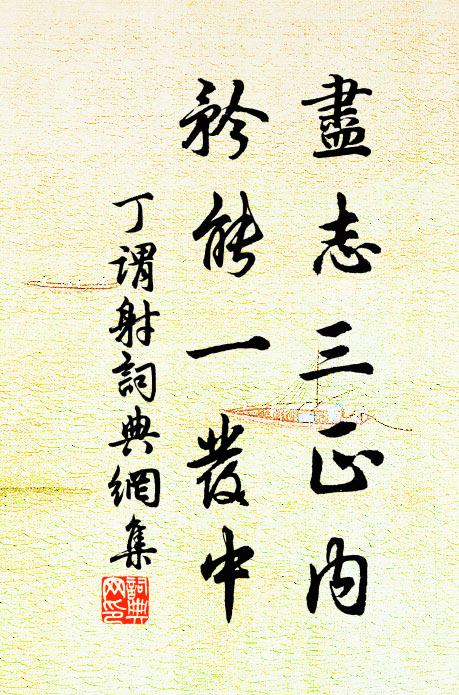 盡志三正內
矜能一發中
丁謂射詞典網集
詞典網印